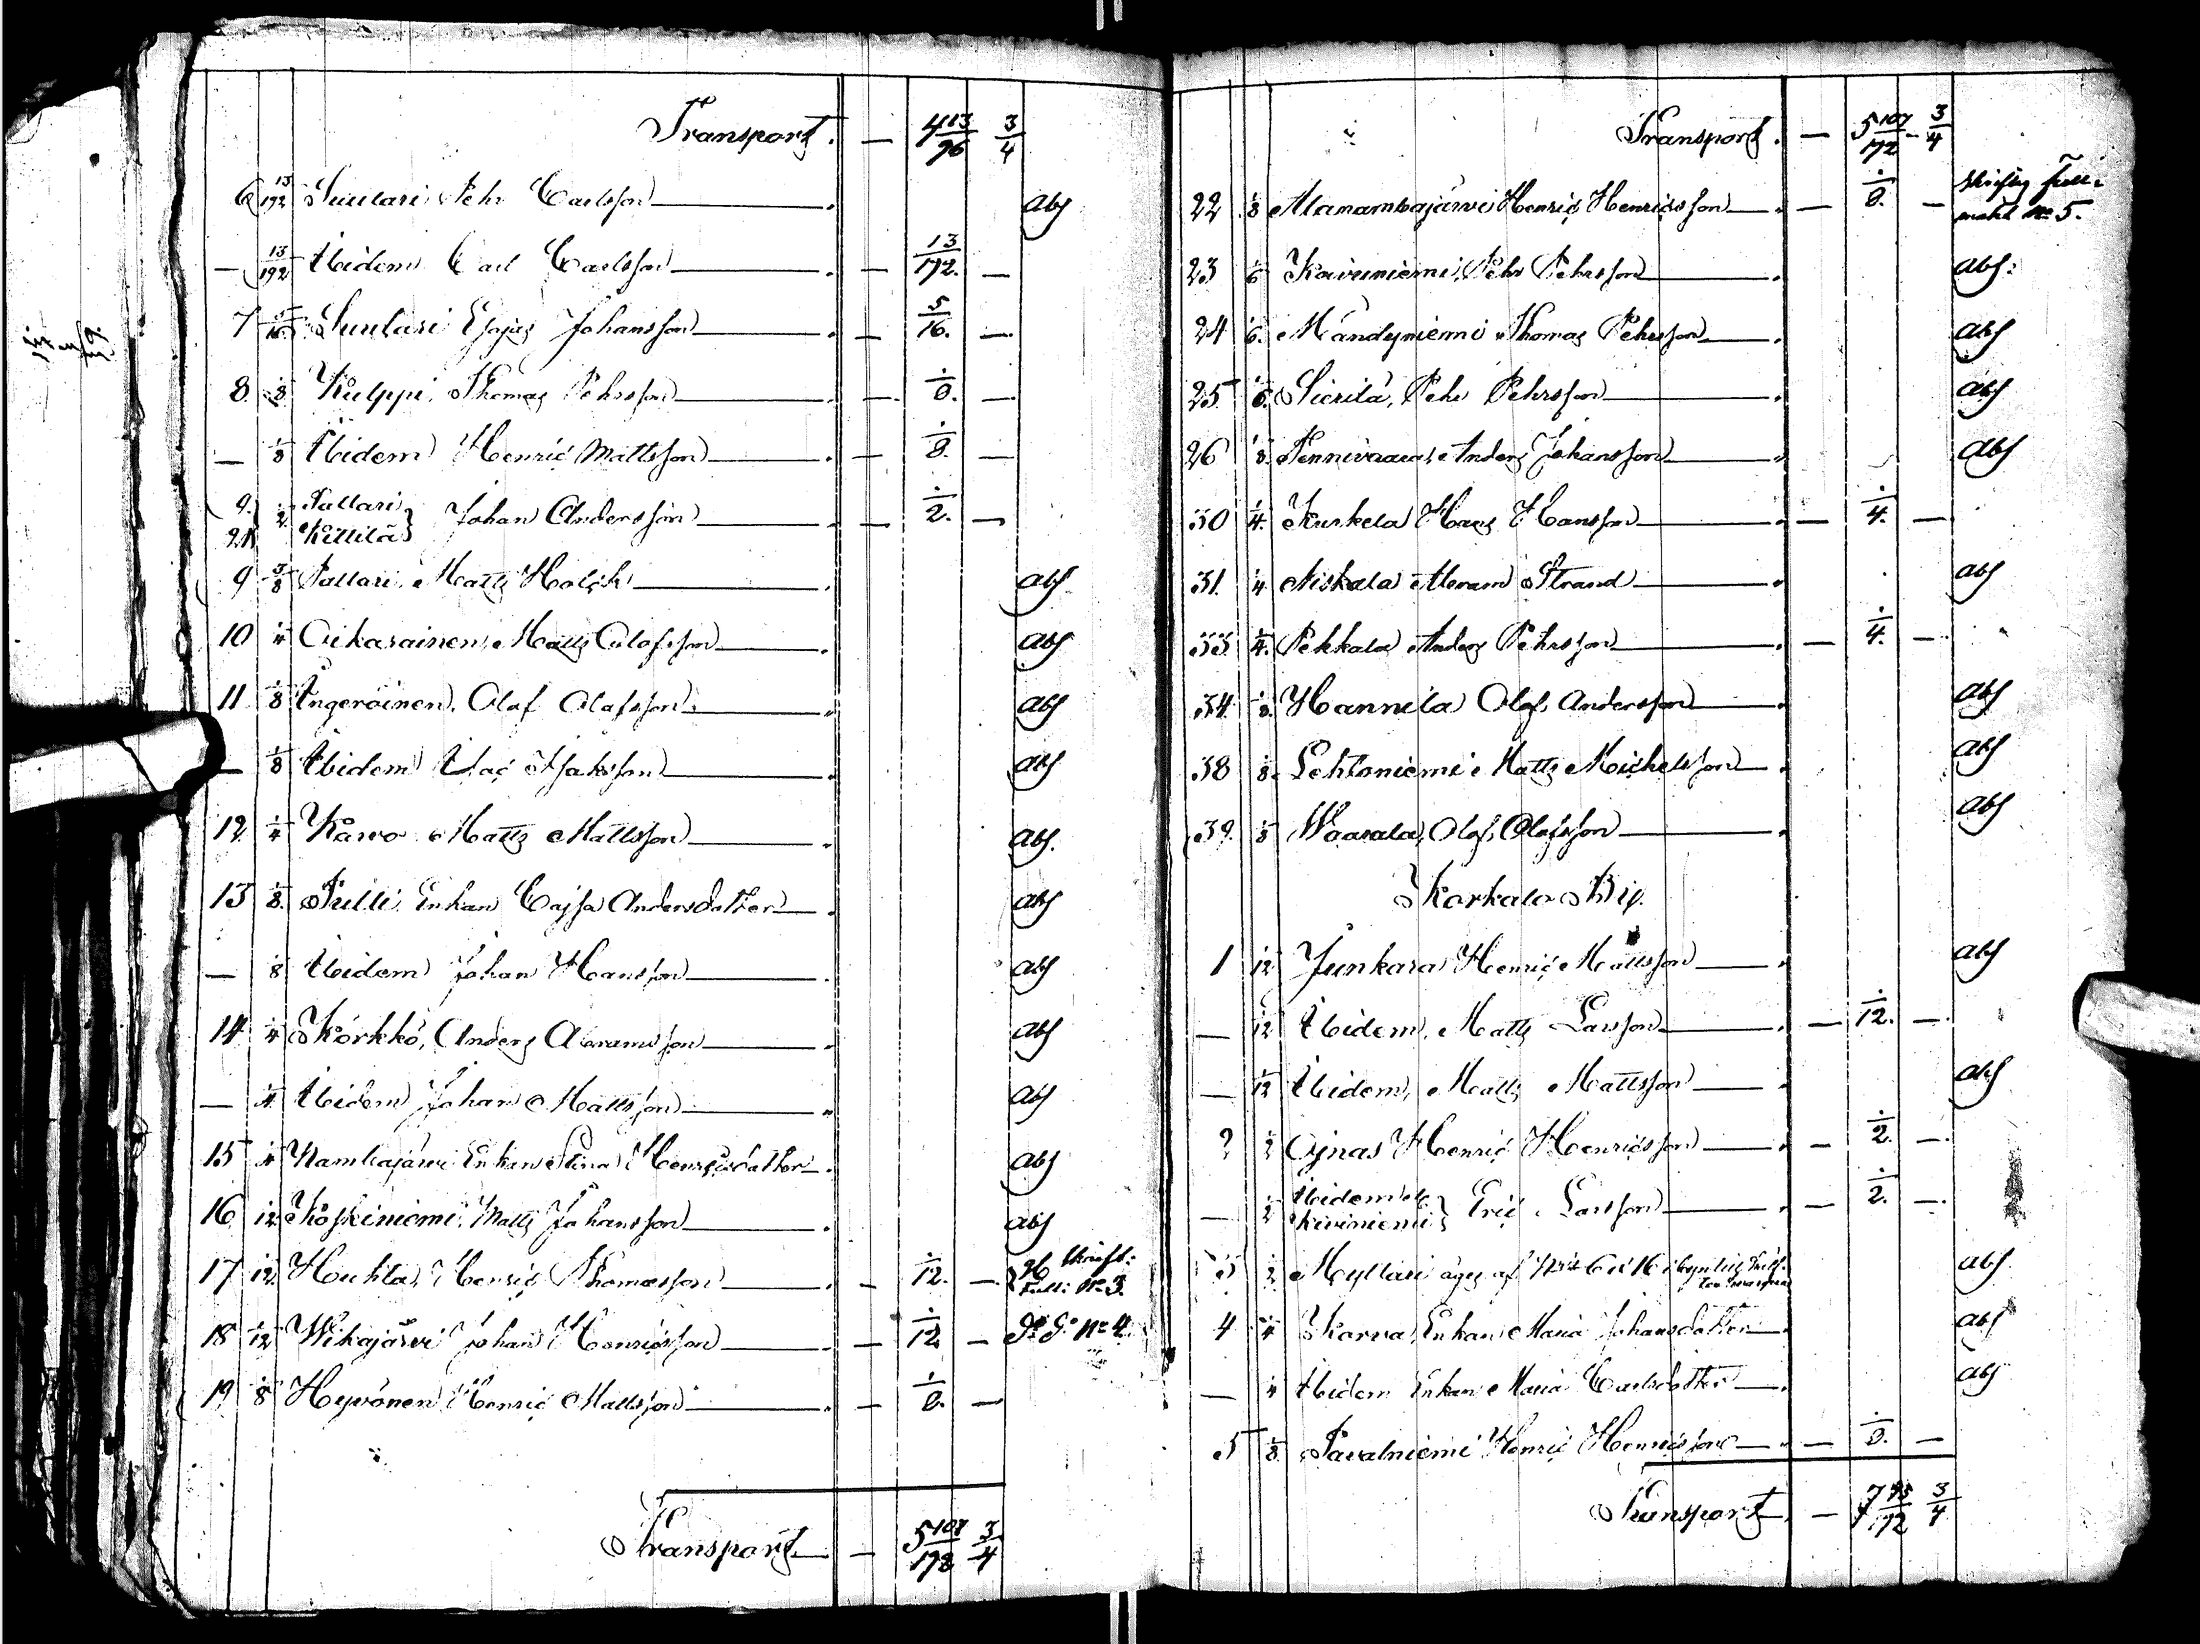 Transport. — 4 13/96 3/4
6 13/192 Suulari Pehr Carlsson abs
— 13/192 Ibidem Carl Carlsson — 13/192. —
7 5/16 Suulari Esajas Johansson — 5/16. —
8. 1/8 Kulppi, Thomas Pehrsson — 1/8. —
— 1/8 Ibidem Henric Mattsson — 1/8. —
9. 21 1/2 Pallari, Kittilä } Johan Andersson — 1/2. —
9 3/8 Pallari, Matts Holck abs.
10 1/4 Oikarainen, Matts Olofsson abs
11 1/8 Ingeröinen, Olof Olofsson abs
— 1/8 Ibidem Isac Isaksson abs
12 1/4 Karvo Matts Mattsson abs.
13 1/8. Pulli Enkan Cajsa Andersdotter abs
— 1/8 Ibidem Johan Hansson abs
14 1/4 Körkkö, Anders Abramsson abs
— 1/4. Ibidem Johan Mattsson abs
15 1/4 Nambajärvi Enkan Stina Henricsdotter abs
16 1/12 Koskiniemi, Matts Johansson abs
17 1/12 Huhta, Henric Thomasson — 1/12. — full: No 3.
18 1/12 Wikajärvi Johan Henricsson — 1/12 — Do Do No 4.
19 1/8 Hyvönen Henric Mattsson — 1/8. —
Transport — 5 107/192 3/4
Transport. — 5 107/192 — 3/4
22 1/8 Alanambajärvi Henric Henricsson — 1/8. — skriftlig full: makt No 5.
23 1/6 Kaivuniemi, Pehr Pehrsson abs:
24 1/6. Mändyniemi Thomas Pehrsson abs
25 1/6. Sierilä, Pehr Pehrsson abs
26 1/8. Pennivaara, Anders Johansson abs
30 1/4. Kurkela Hans Hansson — 1/4. —
31. 1/4 Niskala Abram Strand abs
33 1/4. Pekkala Anders Pehrsson — 1/4. —
34 1/8. Hannila Olof Andersson abs
38 1/8. Lehtoniemi Matts Michelsson abs
39. 1/8 Waarala, Olof Olofsson abs
Korkalo By.
1 1/12 Junkara Henric Mattsson abs
— 1/12 Ibidem, Matts Larsson — 1/12. —
— 1/12 Ibidem, Matts Mattsson abs
2 1/2 Ojnas Henric Henricsson — 1/2. —
— 1/2 Ibidem Kiviniemi } Eric Larsson — 1/2. —
3 1/2 Myllari äges af abs.
4 1/4 Karva, Enkan Maria Johansdotter abs
— 1/4 Ibidem Enkan Maria Carlsdotter abs
5 1/8. Paavalniemi Henric Henricsson — 1/8. —
Transport — 7 95/192 3/4